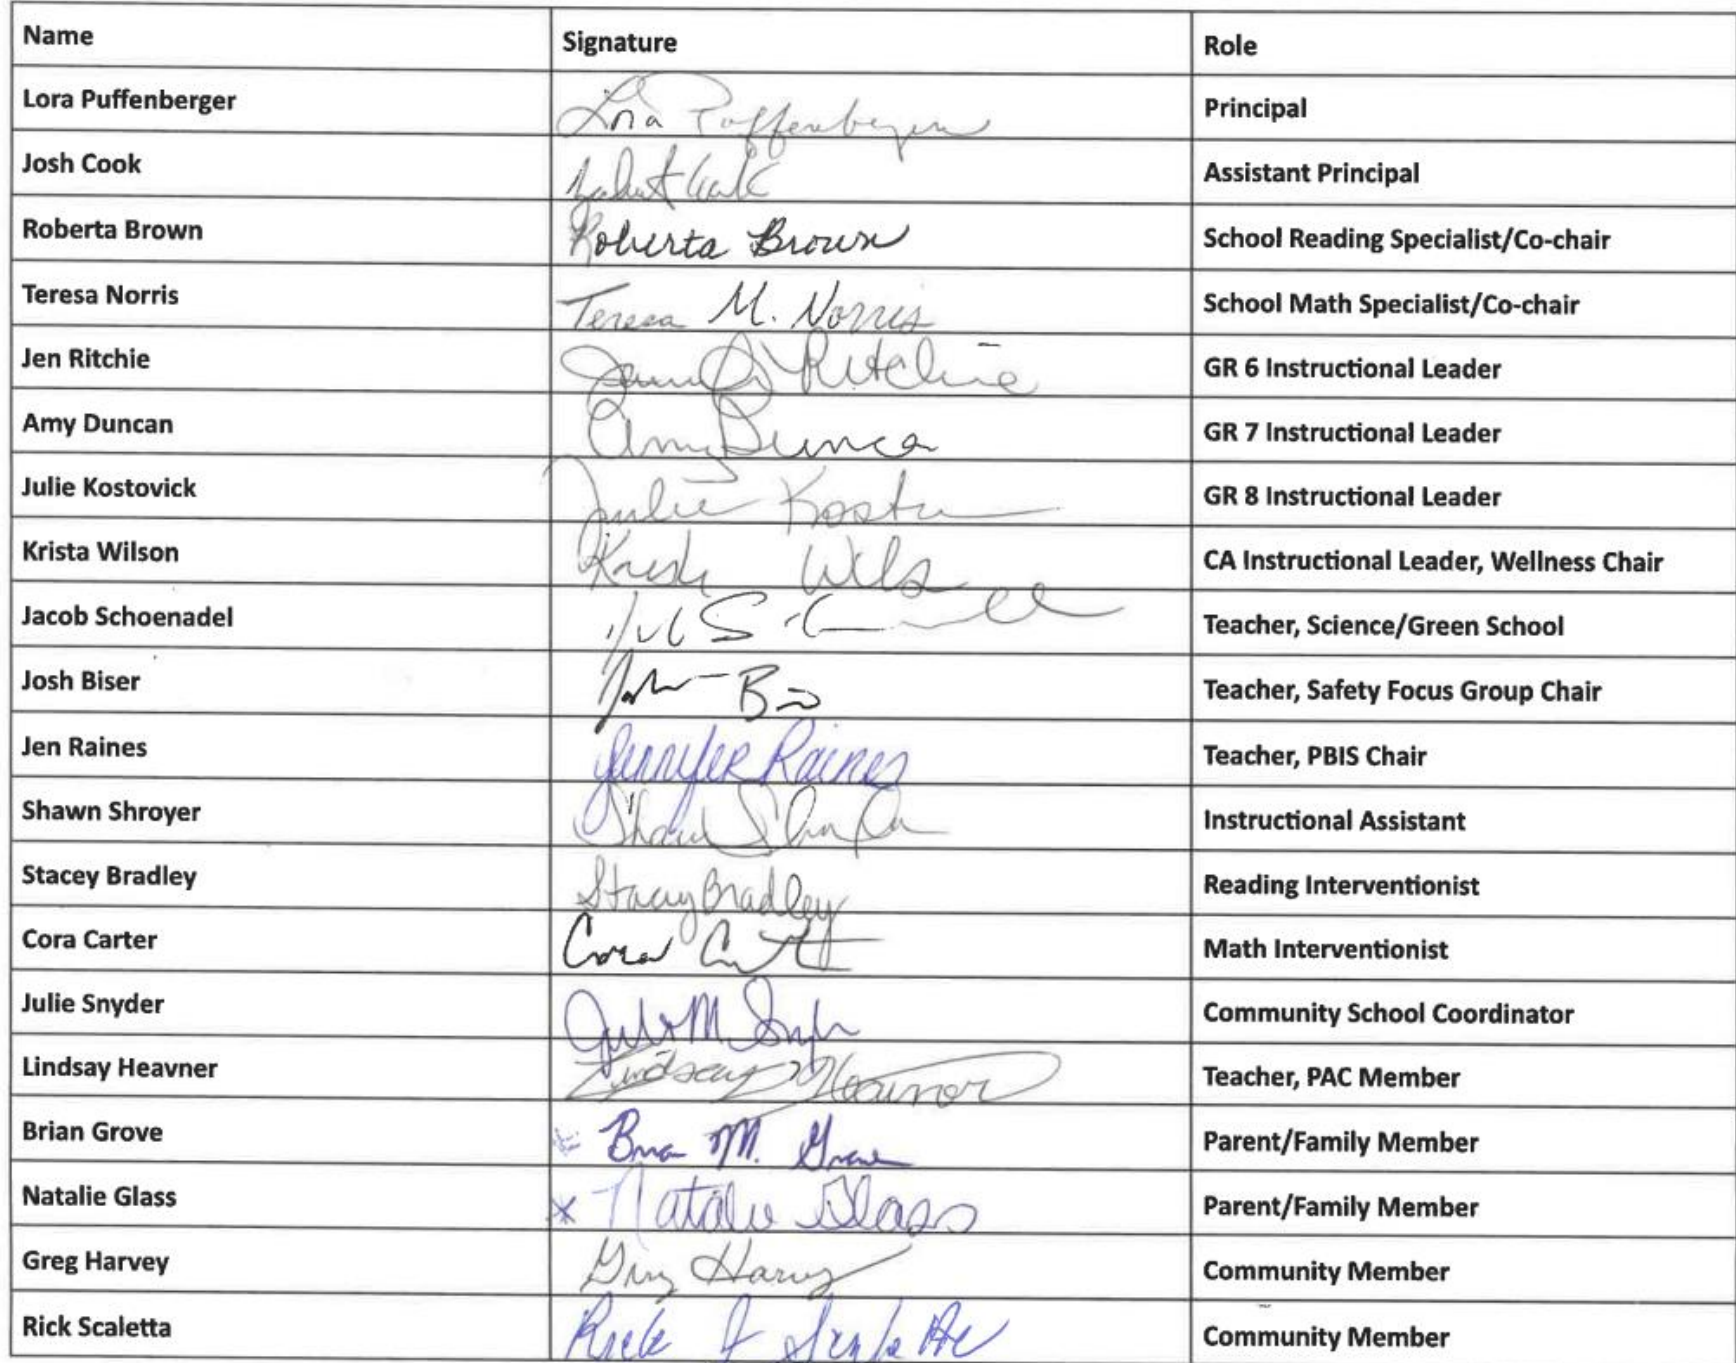 Name Signature Role
Lora Puffenberger Lora Puffenberger Principal
Josh Cook Assistant Principal
Roberta Brown Roberta Brown School Reading Specialist/Co-chair
Teresa Norris Teresa M. Norris School Math Specialist/Co-chair
Jen Ritchie Ritchie GR 6 Instructional Leader
Amy Duncan Amy Duncan GR 7 Instructional Leader
Julie Kostovick Julie GR 8 Instructional Leader
Krista Wilson CA Instructional Leader, Wellness Chair
Jacob Schoenadel Teacher, Science/Green School
Josh Biser Teacher, Safety Focus Group Chair
Jen Raines Jennifer Raines Teacher, PBIS Chair
Shawn Shroyer Shawn Instructional Assistant
Stacey Bradley Stacey Bradley Reading Interventionist
Cora Carter Cora Math Interventionist
Julie Snyder M Community School Coordinator
Lindsay Heavner Lindsay Heavner Teacher, PAC Member
Brian Grove M. Grove Parent/Family Member
Natalie Glass Natalie Glass Parent/Family Member
Greg Harvey Greg Harvey Community Member
Rick Scaletta Rick Community Member